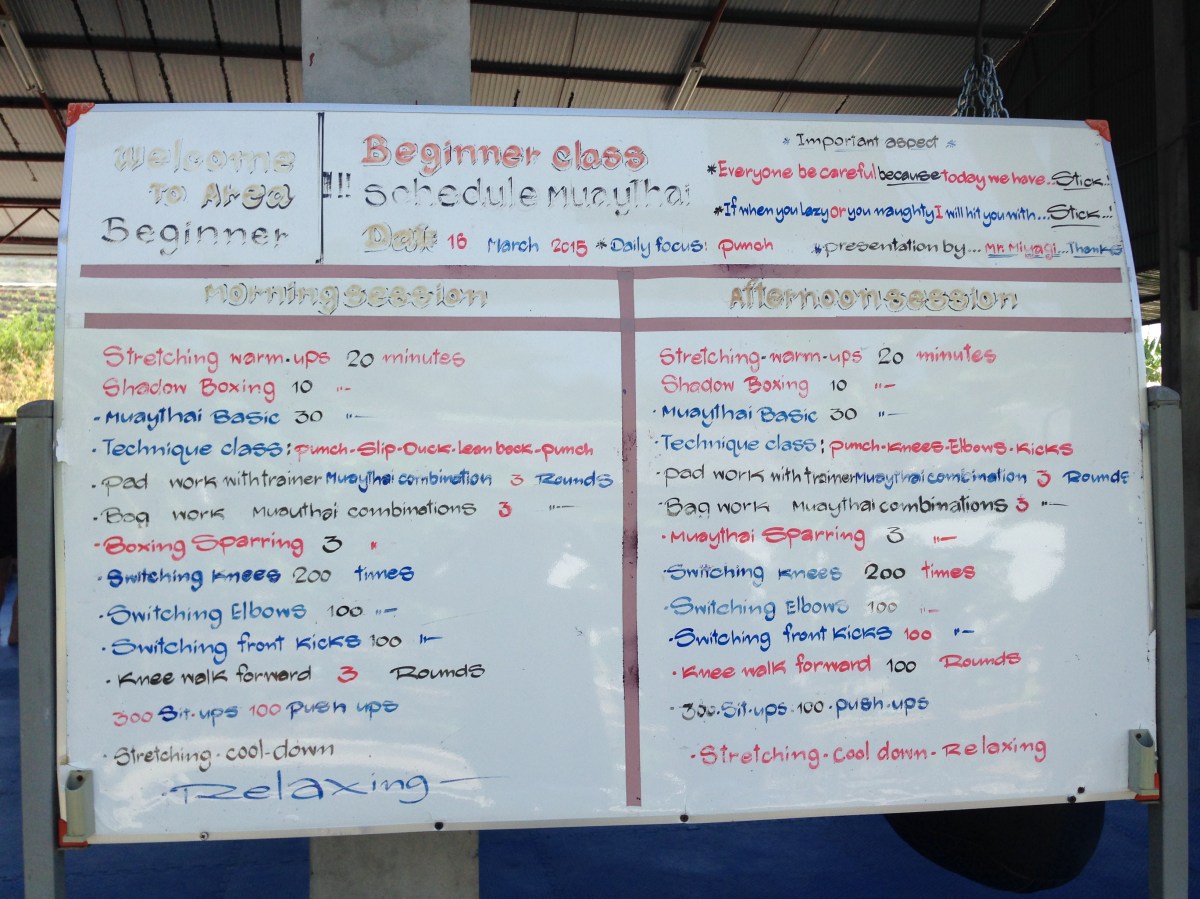 Welcome
To Area
Beginner
!!! Beginner class
Schedule Muaythai
Date 16 March 2015 *Daily focus: punch
* Important aspect *
*Everyone be careful because today we have..Stick.!
*If when you lazy or you naughty I will hit you with...Stick..!
*presentation by... Mr. Miyagi...Thanks
Morning session
Stretching warm-ups 20 minutes
Shadow Boxing 10 "-
·Muaythai Basic 30 "-
·Technique class: punch-Slip-Duck-lean back-punch
·Pad work with trainer Muaythai combination 3 Rounds
·Bag work Muauthai combinations 3 "-
·Boxing Sparring 3 "
·Switching Knees 200 times
·Switching Elbows 100 "-
·Switching front Kicks 100 "-
·Knee walk forward 3 Rounds
300 Sit-ups 100 push ups
·Stretching-cool-down
·Relaxing
Afternoon session
Stretching-warm-ups 20 minutes
Shadow Boxing 10 "-
·Muaythai Basic 30 "-
·Technique class: punch-Knees-Elbows-Kicks
·Pad work with trainer Muaythai combination 3 Rounds
·Bag work Muaythai combinations 3 "-
·Muaythai Sparring 3 "-
·Switching Knees 200 times
·Switching Elbows 100 "-
·Switching front Kicks 100 "-
·Knee walk forward 100 Rounds
·300.Sit-ups.100.push-ups
·Stretching-Cool down-Relaxing